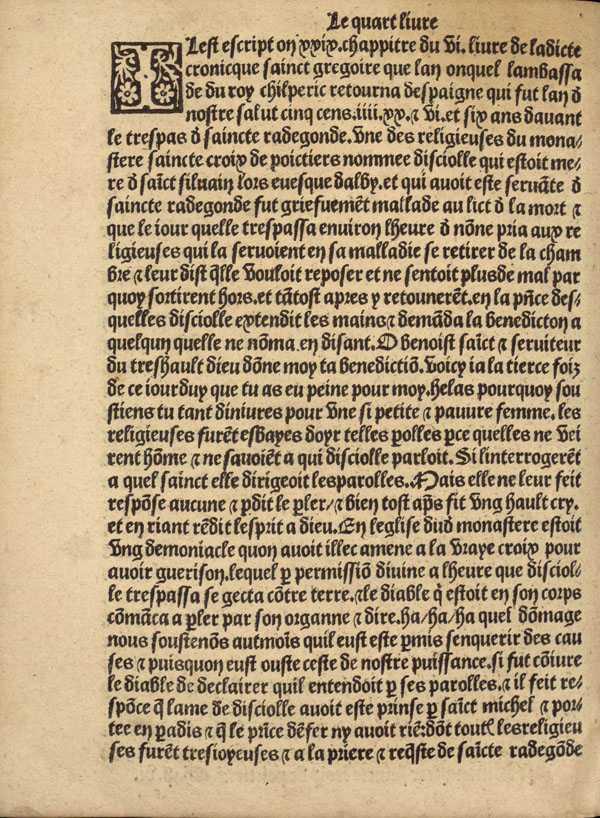 Le quart liure
ILest escript on xxix.chappitre du vi. liure de ladicte
cronicque sainct gregoire que lan onquel lambassa
de du roy chilperic retourna despaigne qui fut lan d̄
nostre salut cinq cens.iiii.xx.⁊ vi.et six ans dauant
le trespas d̄ saincte radegonde. Vne des religieuses du mona/
stere saincte croix de poictiers nommee disciolle qui estoit me/
re d̄ saīct siluain lors euesque dalby.et qui auoit este seruāte d̄
saincte radegonde fut griefuemēt mallade au lict d̄ la mort ⁊
que le iour quelle trespassa enuiron lheure d̄ nōne pria aux re
ligieuses qui la seruoient en sa malladie se retirer de la cham
bre ⁊ leur dist q̄lle vouloit reposer et ne sentoit plusde mal par
quoy sortirent hors.et tātost apres y retounerēt.en la pn̄ce des/
quelles disciolle extendit les mains ⁊ demāda la benedicton a
quelqun quelle ne nōma en disant. O benoist saīct ⁊ seruiteur
du treshault dieu dōne moy ta benedictiō. Voicy ia la tierce foiz
de ce iourduy que tu as eu peine pour moy.helas pourquoy sou
stiens tu tant diniures pour vne si petite ⁊ pauure femme. les
religieuses furēt esbayes doyr telles p̱olles p̱ce quelles ne vei
rent hōme ⁊ ne sauoiēt a qui disciolle parloit. Si linterrogerēt
a quel sainct elle dirigeoit lesparolles. Mais elle ne leur feit
respōse aucune ⁊ p̱dit le p̱ler/⁊ bien tost ap̄s fit vng hault cry.
et en riant rēdit lesprit a dieu. En leglise dud̄ monastere estoit
vng demoniacle quon auoit illec amene a la vraye croix pour
auoir guerison.lequel p̱ permissiō diuine a lheure que disciol/
le trespassa se gecta cōtre terre.⁊le diable q̄ estoit en son corps
cōmāca a p̱ler par son organne ⁊ dire.ha/ha/ha quel dōmage
nous soustenōs autmoīs quil eust este p̱mis senquerir des cau
ses ⁊ puisquon eust ouste ceste de nostre puissance.si fut cōiure
le diable de declairer quil entendoit p̱ ses parolles.⁊ il feit re/
spōce q̄ lame de disciolle auoit este prinse p̱ saīct michel ⁊ por/
tee en p̱adis ⁊ q̄ le prīce dēfer ny auoit riē:dōt toutes lesreligieu
ses furēt tresioyeuses ⁊ a la priere ⁊ req̄ste de saīcte radegōde